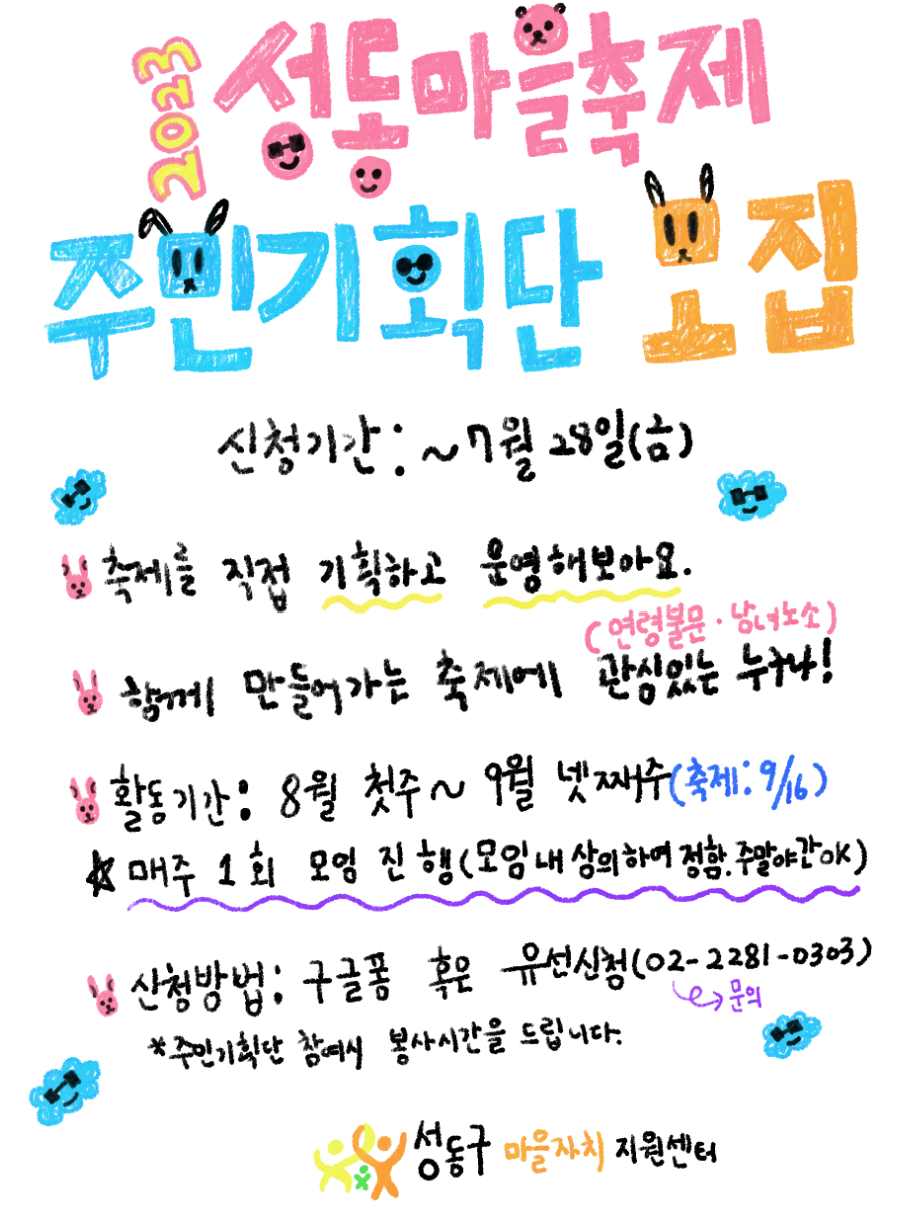 2023 성동마을축제
주민기획단 모집
신청기간: ~7월 28일(금)
축제를 직접 기획하고 운영해보아요.
(연령불문·남녀노소)
함께 만들어가는 축제에 관심있는 누구나!
활동기간: 8월 첫주 ~ 9월 넷째주(축제: 9/16)
☆ 매주 1회 모임 진행(모임 내 상의하여 정함. 주말야간OK)
신청방법: 구글폼 혹은 유선신청(02-2281-0303)
문의
*주민기획단 참여시 봉사시간을 드립니다.
성동구 마을자치 지원센터